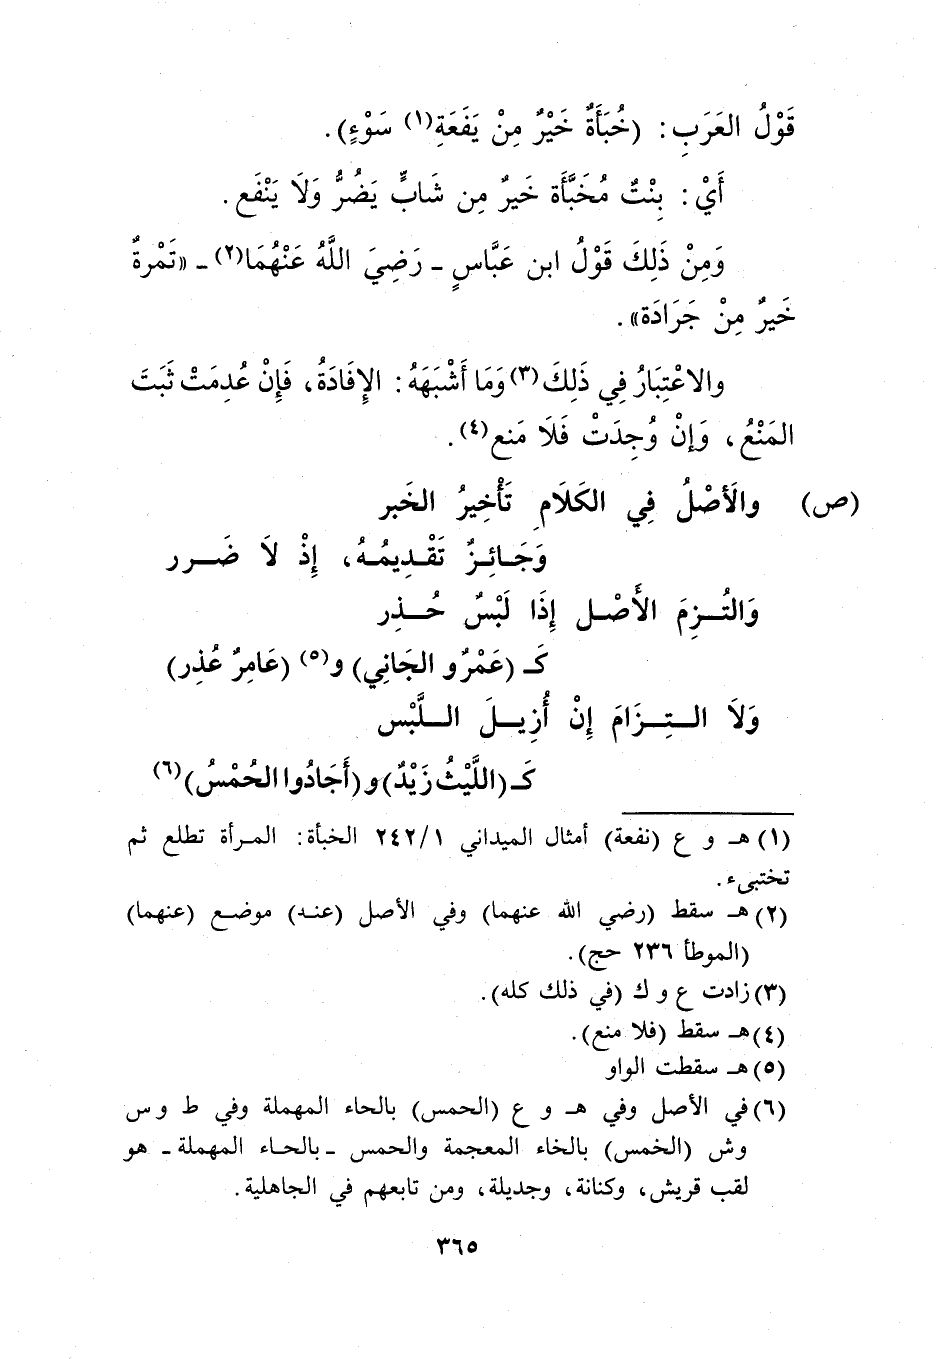 قَوْلُ العَرَبِ: (خُبَأَةٌ خَيْرٌ مِنْ يَفَعَةِ(١) سَوْءٍ).
أَيْ: بِنْتٌ مُخَبَّأَة خَيرٌ مِن شَابٍّ يَضُرُّ وَلَا يَنْفَع.
وَمِنْ ذَلِكَ قَوْلُ ابن عَبَّاسٍ ـ رَضِيَ اللَّهُ عَنْهُمَا(٢) ـ «تَمْرةٌ
خَيرٌ مِنْ جَرَادَة».
والاعْتِبَارُ فِي ذَلِكَ(٣) وَمَا أَشْبَهَهُ: الإِفَادَةُ، فَإِنْ عُدِمَتْ ثَبَتَ
المَنْعُ، وَإِنْ وُجِدَتْ فَلَا مَنع(٤).
(ص) والَأصْلُ فِي الكَلَامِ تَأْخِيرُ الخَبر
وَجَـائِـزٌ تَقْـدِيمُـهُ، إِذْ لَا ضَـرر
وَالتُـزِمَ الأَصْـل إِذَا لَبْسٌ حُـذِر
كَـ (عَمْرٌو الجَانِي) و(٥) (عَامِرٌ عُذِر)
وَلَا الـتِـزَامَ إِنْ أُزِيـلَ الـلَّبْس
كَـ (اللَّيْثُ زَيْدٌ) و (أَجَادُوا الحُمْسُ)(٦)
(١) هـ و ع (نفعة) أمثال الميداني ٢٤٢/١ الخبأة: المرأة تطلع ثم
تختبىء.
(٢) هـ سقط (رضي الله عنهما) وفي الأصل (عنه) موضع (عنهما)
(الموطأ ٢٣٦ حج).
(٣) زادت ع و ك (في ذلك كله).
(٤) هـ سقط (فلا منع).
(٥) هـ سقطت الواو
(٦) في الأصل وفي هـ و ع (الحمس) بالحاء المهملة وفي ط و س
وش (الخمس) بالخاء المعجمة والحمس ـ بالحاء المهملة ـ هو
لقب قريش، وكنانة، وجديلة، ومن تابعهم في الجاهلية.
٣٦٥